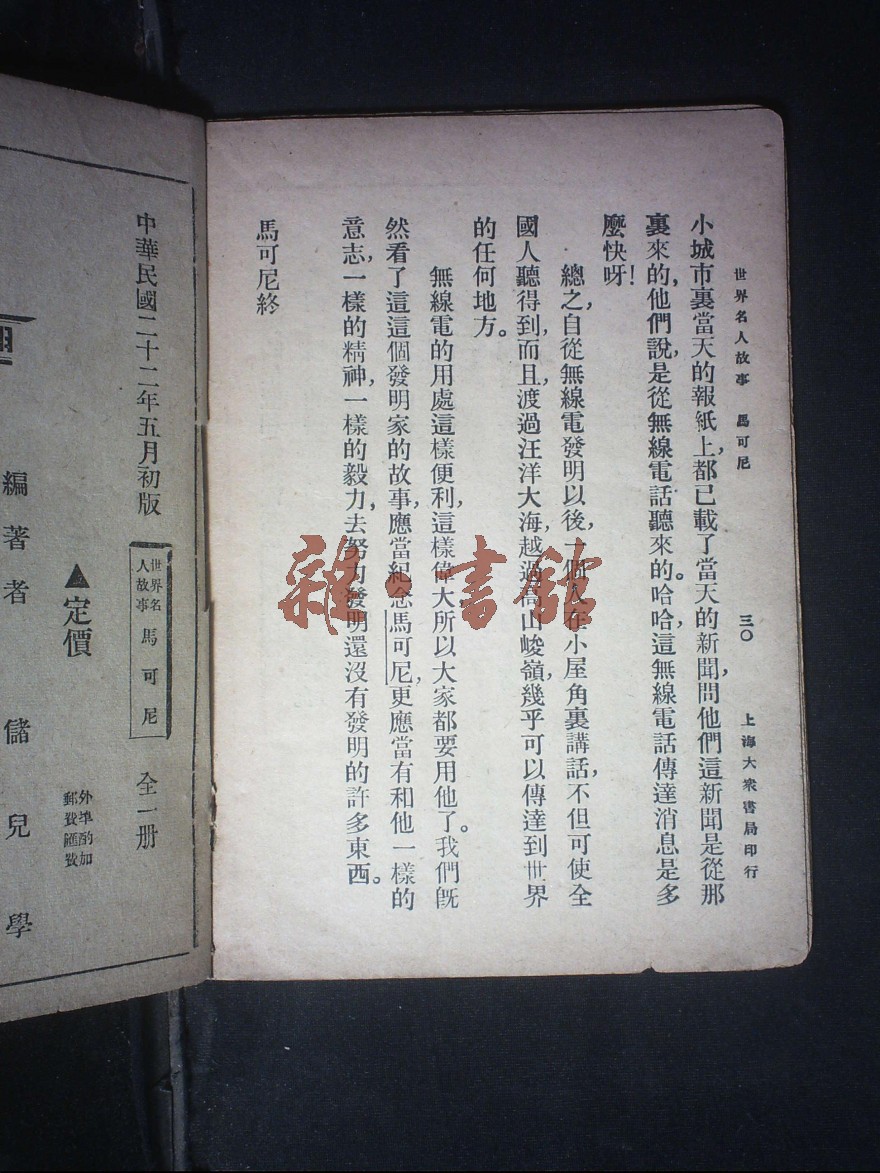 世界名人故事　馬可尼　三〇　上海大衆書局印行
小城市裏當天的報紙上，都已載了當天的新聞，問他們這新聞是從那
裏來的，他們說，是從無線電話聽來的。哈哈，這無線電話傳達消息是多
麼快呀！
總之，自從無線電發明以後，一個人在小屋角裏講話，不但可使全
國人聽得到，而且渡過汪洋大海，越過高山峻嶺，幾乎可以傳達到世界
的任何地方。
無線電的用處這樣便利，這樣偉大，所以大家都要用他了。我們旣
然看了這這個發明家的故事，應當紀念馬可尼，更應當有和他一樣的
意志，一樣的精神，一樣的毅力，去努力發明還沒有發明的許多東西。
馬可尼終
雜·書館
中華民國二十二年五月初版
世界名人故事　馬可尼　全一册
▲定價
外埠酌加
郵費匯費
編著者　儲兒學